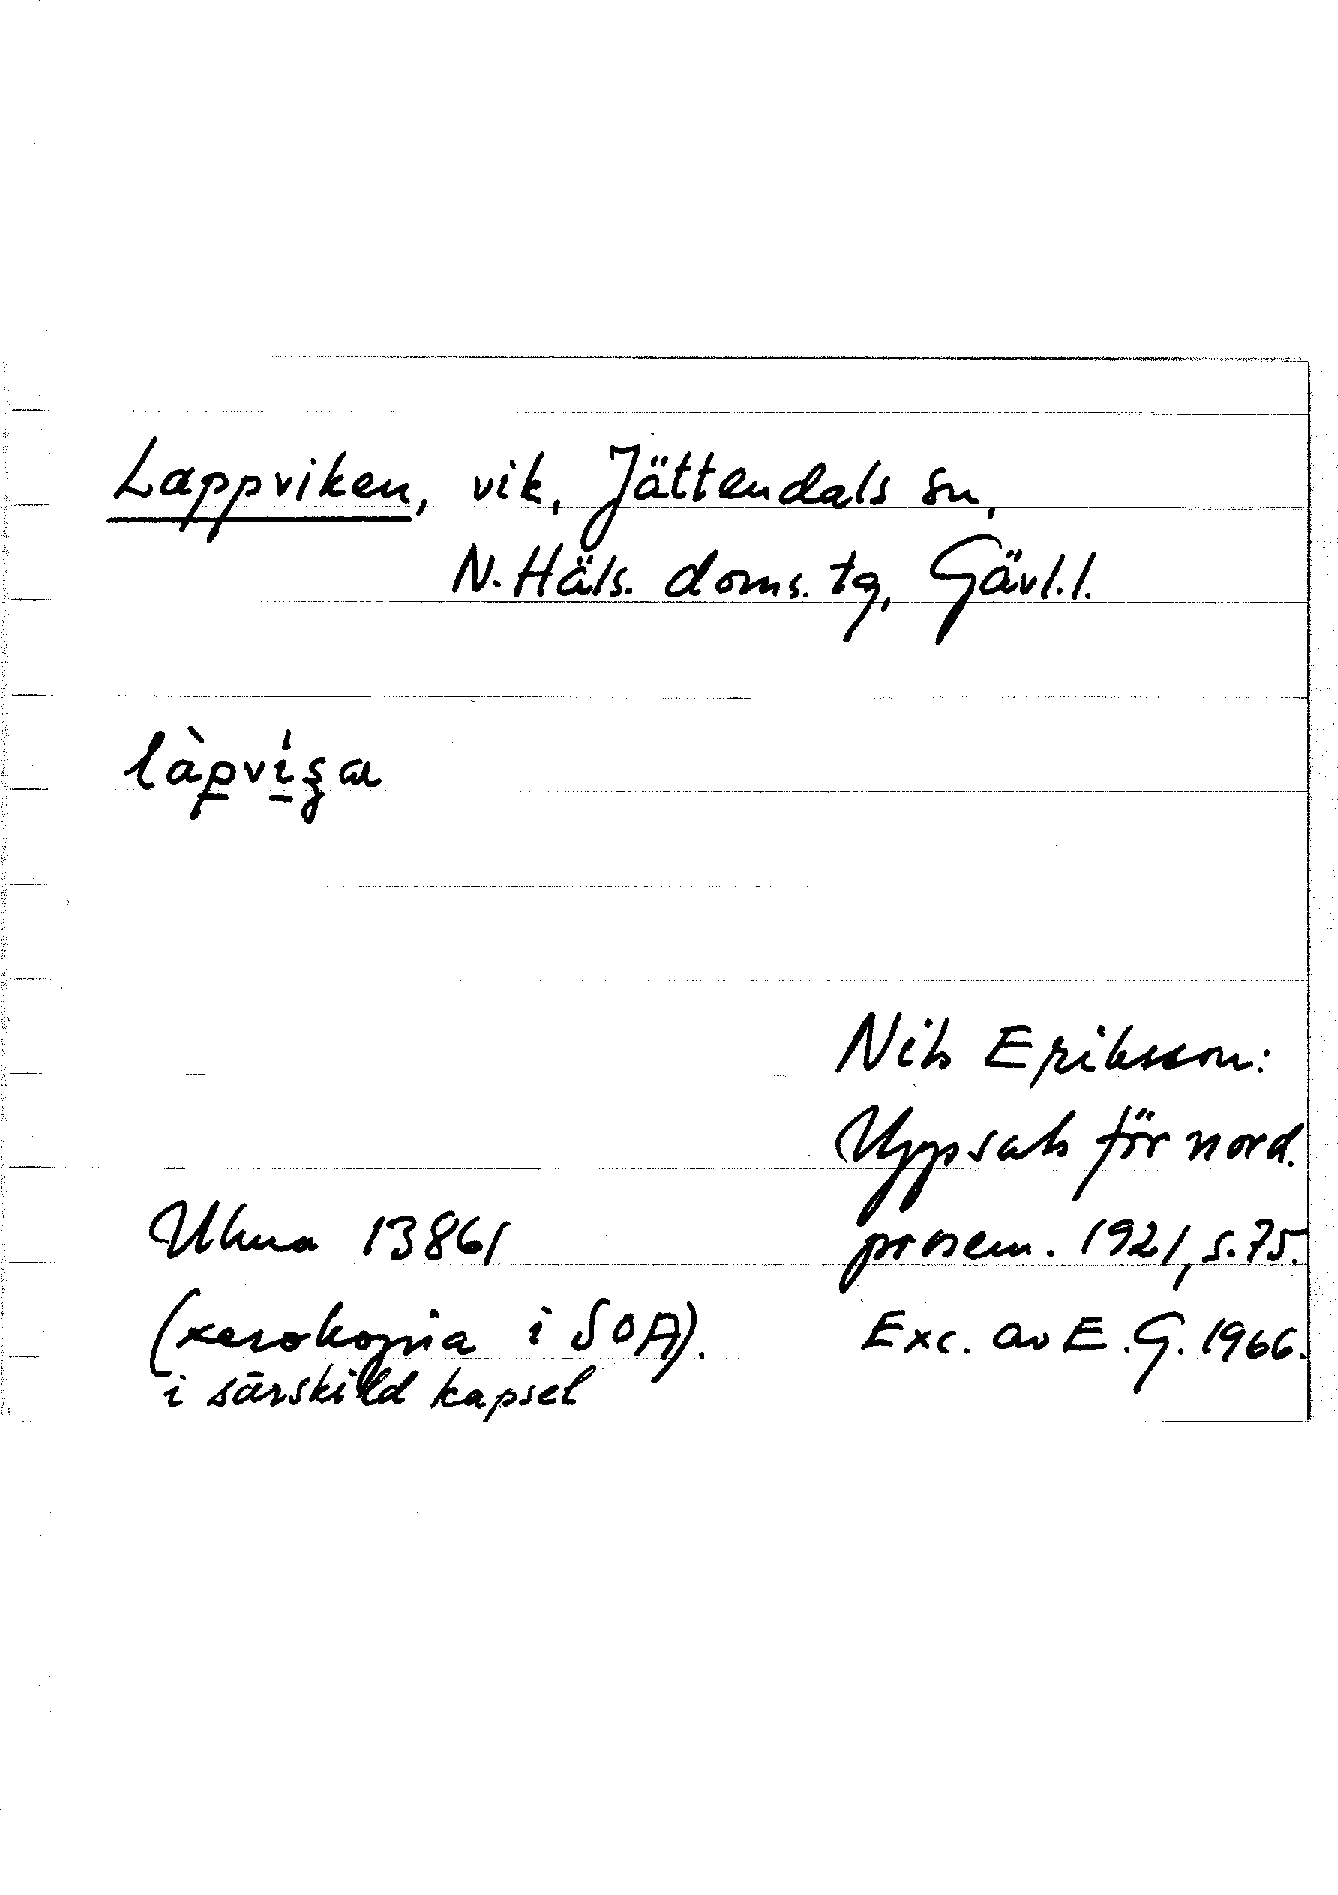 Lappviken, vik, Jättendals sn,
N. Häls. doms. tg, Gävl. l.
Nils Eriksson:
Uppsats för nord.
prosem. 1921, s. 75.
Exc. av E. G. 1966.
Ulma 13861
(xerokopia i SOA).
i särskild kapsel